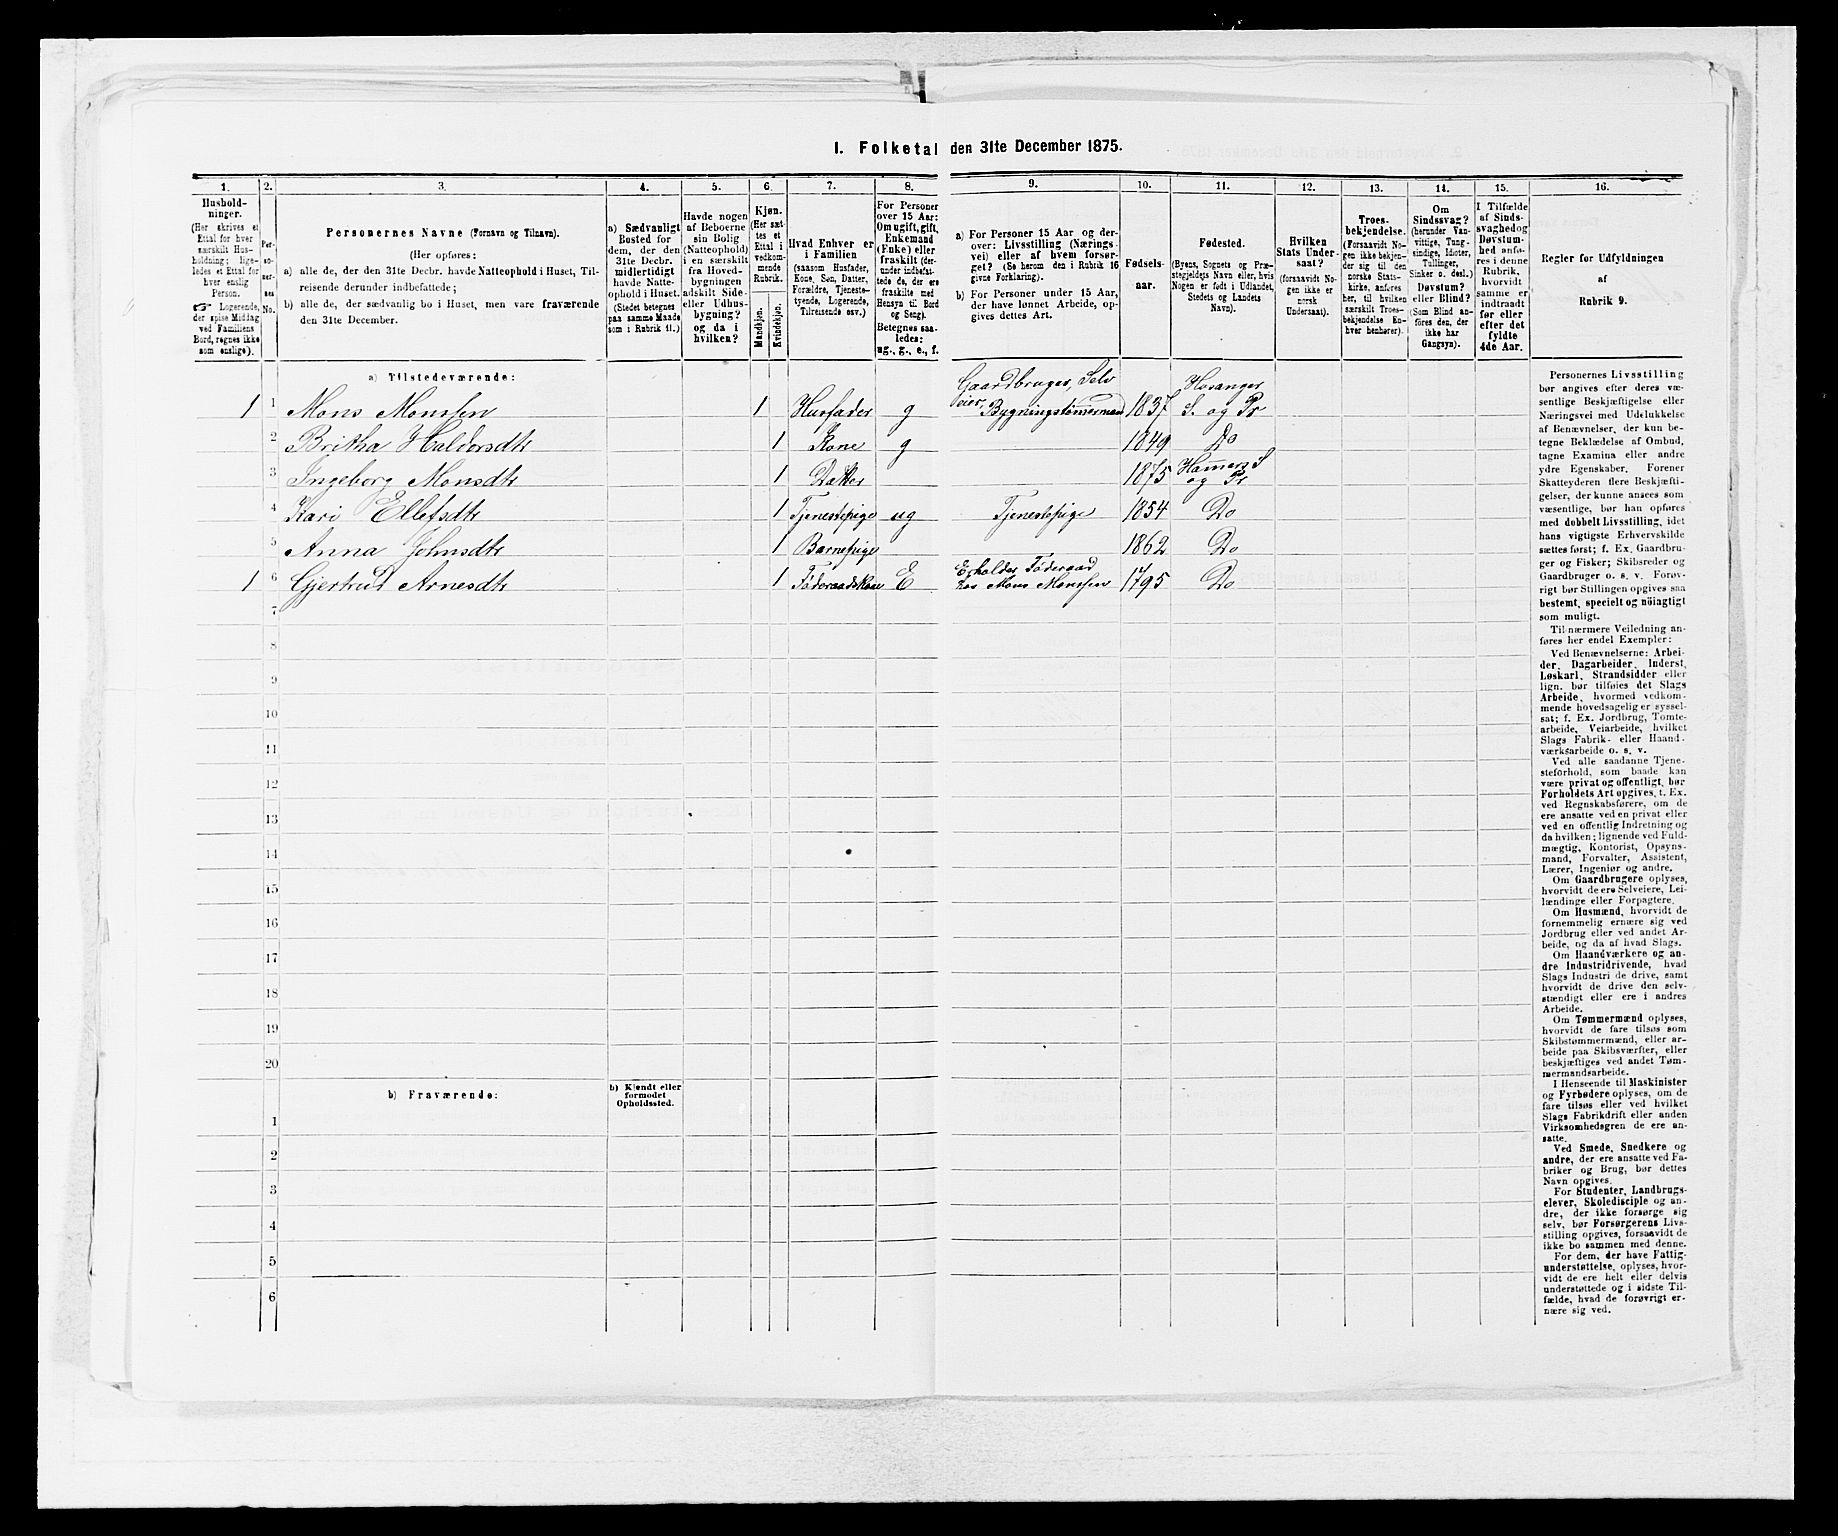 1. Folketal den 31te December 1875.
1. 2. 3. 4. 5. 6. 7. 8. 9. 10. 11. 12. 13. 14. 15. 16.
Hushold-
ninger.
(Her skrives et
Ettal for hver
særskilt Hus-
holdning; lige-
ledes et Ettal for
hver enslig
Person.
☞ Logerende,
der spise Middag
ved Familiens
Bord, regnes ikke
som enslige).
Per-
so-
ner-
nes
No.
Personernes Navne (Fornavn og Tilnavn).
(Her opføres:
a) alle de, der den 31te Decbr. havde Natteophold i Huset, Til-
reisende derunder indbefattede;
b) alle de, der sædvanlig bo i Huset, men vare fraværende
den 31te December.
a) Sædvanligt
Bosted for
dem, der den
31te Decbr.
midlertidigt
havde Natte-
ophold i Huset.
(Stedet betegnes
paa samme Maade
som i Rubrik 11.)
Havde nogen
af Beboerne
sin Bolig
(Natteophold)
i en særskilt
fra Hoved-
bygningen
adskilt Side-
eller Udhus-
bygning?
og da i
hvilken?
Kjøn.
(Her sæt-
tes et
Ettal i
vedkom-
mende
Rubrik.
Mandkjøn.
Kvindekjøn.
Hvad Enhver er
i Familien
(saasom Husfader,
Kone, Søn, Datter,
Forældre, Tjeneste-
tyende, Logerende,
Tilreisende osv.)
For Personer
over 15 Aar:
Om ugift, gift,
Enkemand
(Enke) eller
fraskilt (der-
under indbefat-
tede de, der ere
fraskilte med
Hensyn til Bord
og Seng).
Betegnes saa-
ledes:
ug., g., e., f.
a) For Personer 15 Aar og der-
over: Livsstilling (Nærings-
vei) eller af hvem forsør-
get? (Se herom den i Rubrik 16
givne Forklaring).
b) For Personer under 15 Aar,
der have lønnet Arbeide, op-
gives dettes Art.
Fødsels-
aar.
Fødested.
(Byens, Sognets og Præ-
stegjeldets Navn eller, hvis
Nogen er født i Udlandet,
Stedets og Landets
Navn).
Hvilken
Stats Under-
saat?
(forsaavidt No-
gen ikke er
norsk
Undersaat).
Troes-
bekjendelse.
(Forsaavidt No-
gen ikke bekjen-
der sig til den
norske Stats-
kirke, anføres
her, til hvilken
særskilt Troes-
bekjendelse En-
hver henhører).
Om
Sindssvag?
(herunder Van-
vittige, Tung-
sindige, Idioter,
Tullinger,
Sinker o. desl.)
Døvstum?
eller Blind?
(Som Blind an-
føres den, der
ikke har
Gangsyn).
I Tilfælde
af Sinds-
svaghed og
Døvstum-
hed anfø-
res i denne
Rubrik,
hvorvidt
samme er
indtraadt
før eller
efter det
fyldte
4de Aar.
Regler for Udfyldningen
af
Rubrik 9.
a) Tilstedeværende:
1 1 Mons Monsen 1 Husfader g Gaardbruger, Selv
eier, Bygningstømermand 1837 Hosanger
S. og Pr
2 Britha Haldorsdtr 1 Kone g 1849 Do
3 Ingeborg Monsdtr 1 Datter 1875 Hamers S
og Pr
4 Kari Ellefsdtr 1 Tjenestepige ug Tjenestepige 1854 Do
5 Anna Johnsdtr 1 Barnepige 1862 Do
1 6 Gjertrud Arnesdtr 1 Føderaadskone E Erholder Føderaad
hos Mons Monssen 1795 Do
7
8
9
10
11
12
13
14
15
16
17
18
19
20
b) Fraværende:
b) Kjendt eller
formodet
Opholdssted.
1
2
3
4
5
6
Personernes Livsstilling
bør angives efter deres væ-
sentlige Beskjæftigelse eller
Næringsvei med Udelukkelse
af Benævnelser, der kun be-
tegne Beklædelse af Ombud,
tagne Examina eller andre
ydre Egenskaber. Forener
Skatteyderen flere Beskjæfti-
gelser, der kunne ansees som
væsentlige, bør han opføres
med dobbelt Livsstilling, idet
hans vigtigste Erhvervskilde
sættes først; f. Ex. Gaardbru-
ger og Fisker; Skibsreder og
Gaardbruger o. s. v. Forøv-
rigt bør Stillingen opgives saa
bestemt, specielt og nöiagtigt
som muligt.
Til nærmere Veiledning an-
føres her endel Exempler:
Ved Benævnelserne: Arbei-
der, Dagarbeider, Inderst,
Løskarl, Strandsidder eller
lign. bør tilføies det Slags
Arbeide, hvormed vedkom-
mende hovedsagelig er syssel-
sat; f. Ex. Jordbrug, Tomte-
arbeide, Veiarbeide, hvilket
Slags Fabrik- eller Haand-
værksarbeide o. s. v.
Ved alle saadanne Tjene-
steforhold, som baade kan
være privat og offentligt, bør
Forholdets Art opgives, t. Ex.
ved Regnskabsførere, om de
ere ansatte ved en privat eller
ved en offentlig Indretning og
da hvilken; lignende ved Fuld-
mægtig, Kontorist, Opsyns-
mand, Forvalter, Assistent,
Lærer, Ingeniør og andre.
Om Gaardbrugere oplyses,
hvorvidt de ere Selveiere, Lei-
lændinge eller Forpagtere.
Om Husmænd, hvorvidt de
fornemmelig ernære sig ved
Jordbrug eller ved andet Ar-
beide, og da af hvad Slags.
Om Haandværkere og an-
dre Industridrivende, hvad
Slags Industri de drive, samt
hvorvidt de drive den selv-
stændigt eller ere i andres
Arbeide.
Om Tømmermænd oplyses,
hvorvidt de fare tilsøs som
Skibstømmermænd, eller ar-
beide paa Skibsværfter, eller
beskjæftiges ved andet Tøm-
mermandsarbeide.
I Henseende til Maskinister
og Fyrbødere oplyses, om de
fare tilsøs eller ved hvilket
Slags Fabrikdrift eller anden
Virksomhedsgren de ere an-
satte.
Ved Smede, Snedkere og
andre, der ere ansatte ved Fa-
briker og Brug, bør dettes
Navn opgives.
For Studenter, Landbrugs-
elever, Skoledisciple og an-
dre, der ikke forsørge sig
selv, bør Forsørgerens Livs-
stilling opgives, forsaavidt de
ikke bo sammen med denne.
For dem, der have Fattig-
understøttelse, oplyses, hvor-
vidt de ere helt eller delvis
understøttede og i sidste Til-
fælde, hvad de forøvrigt er-
nære sig ved.